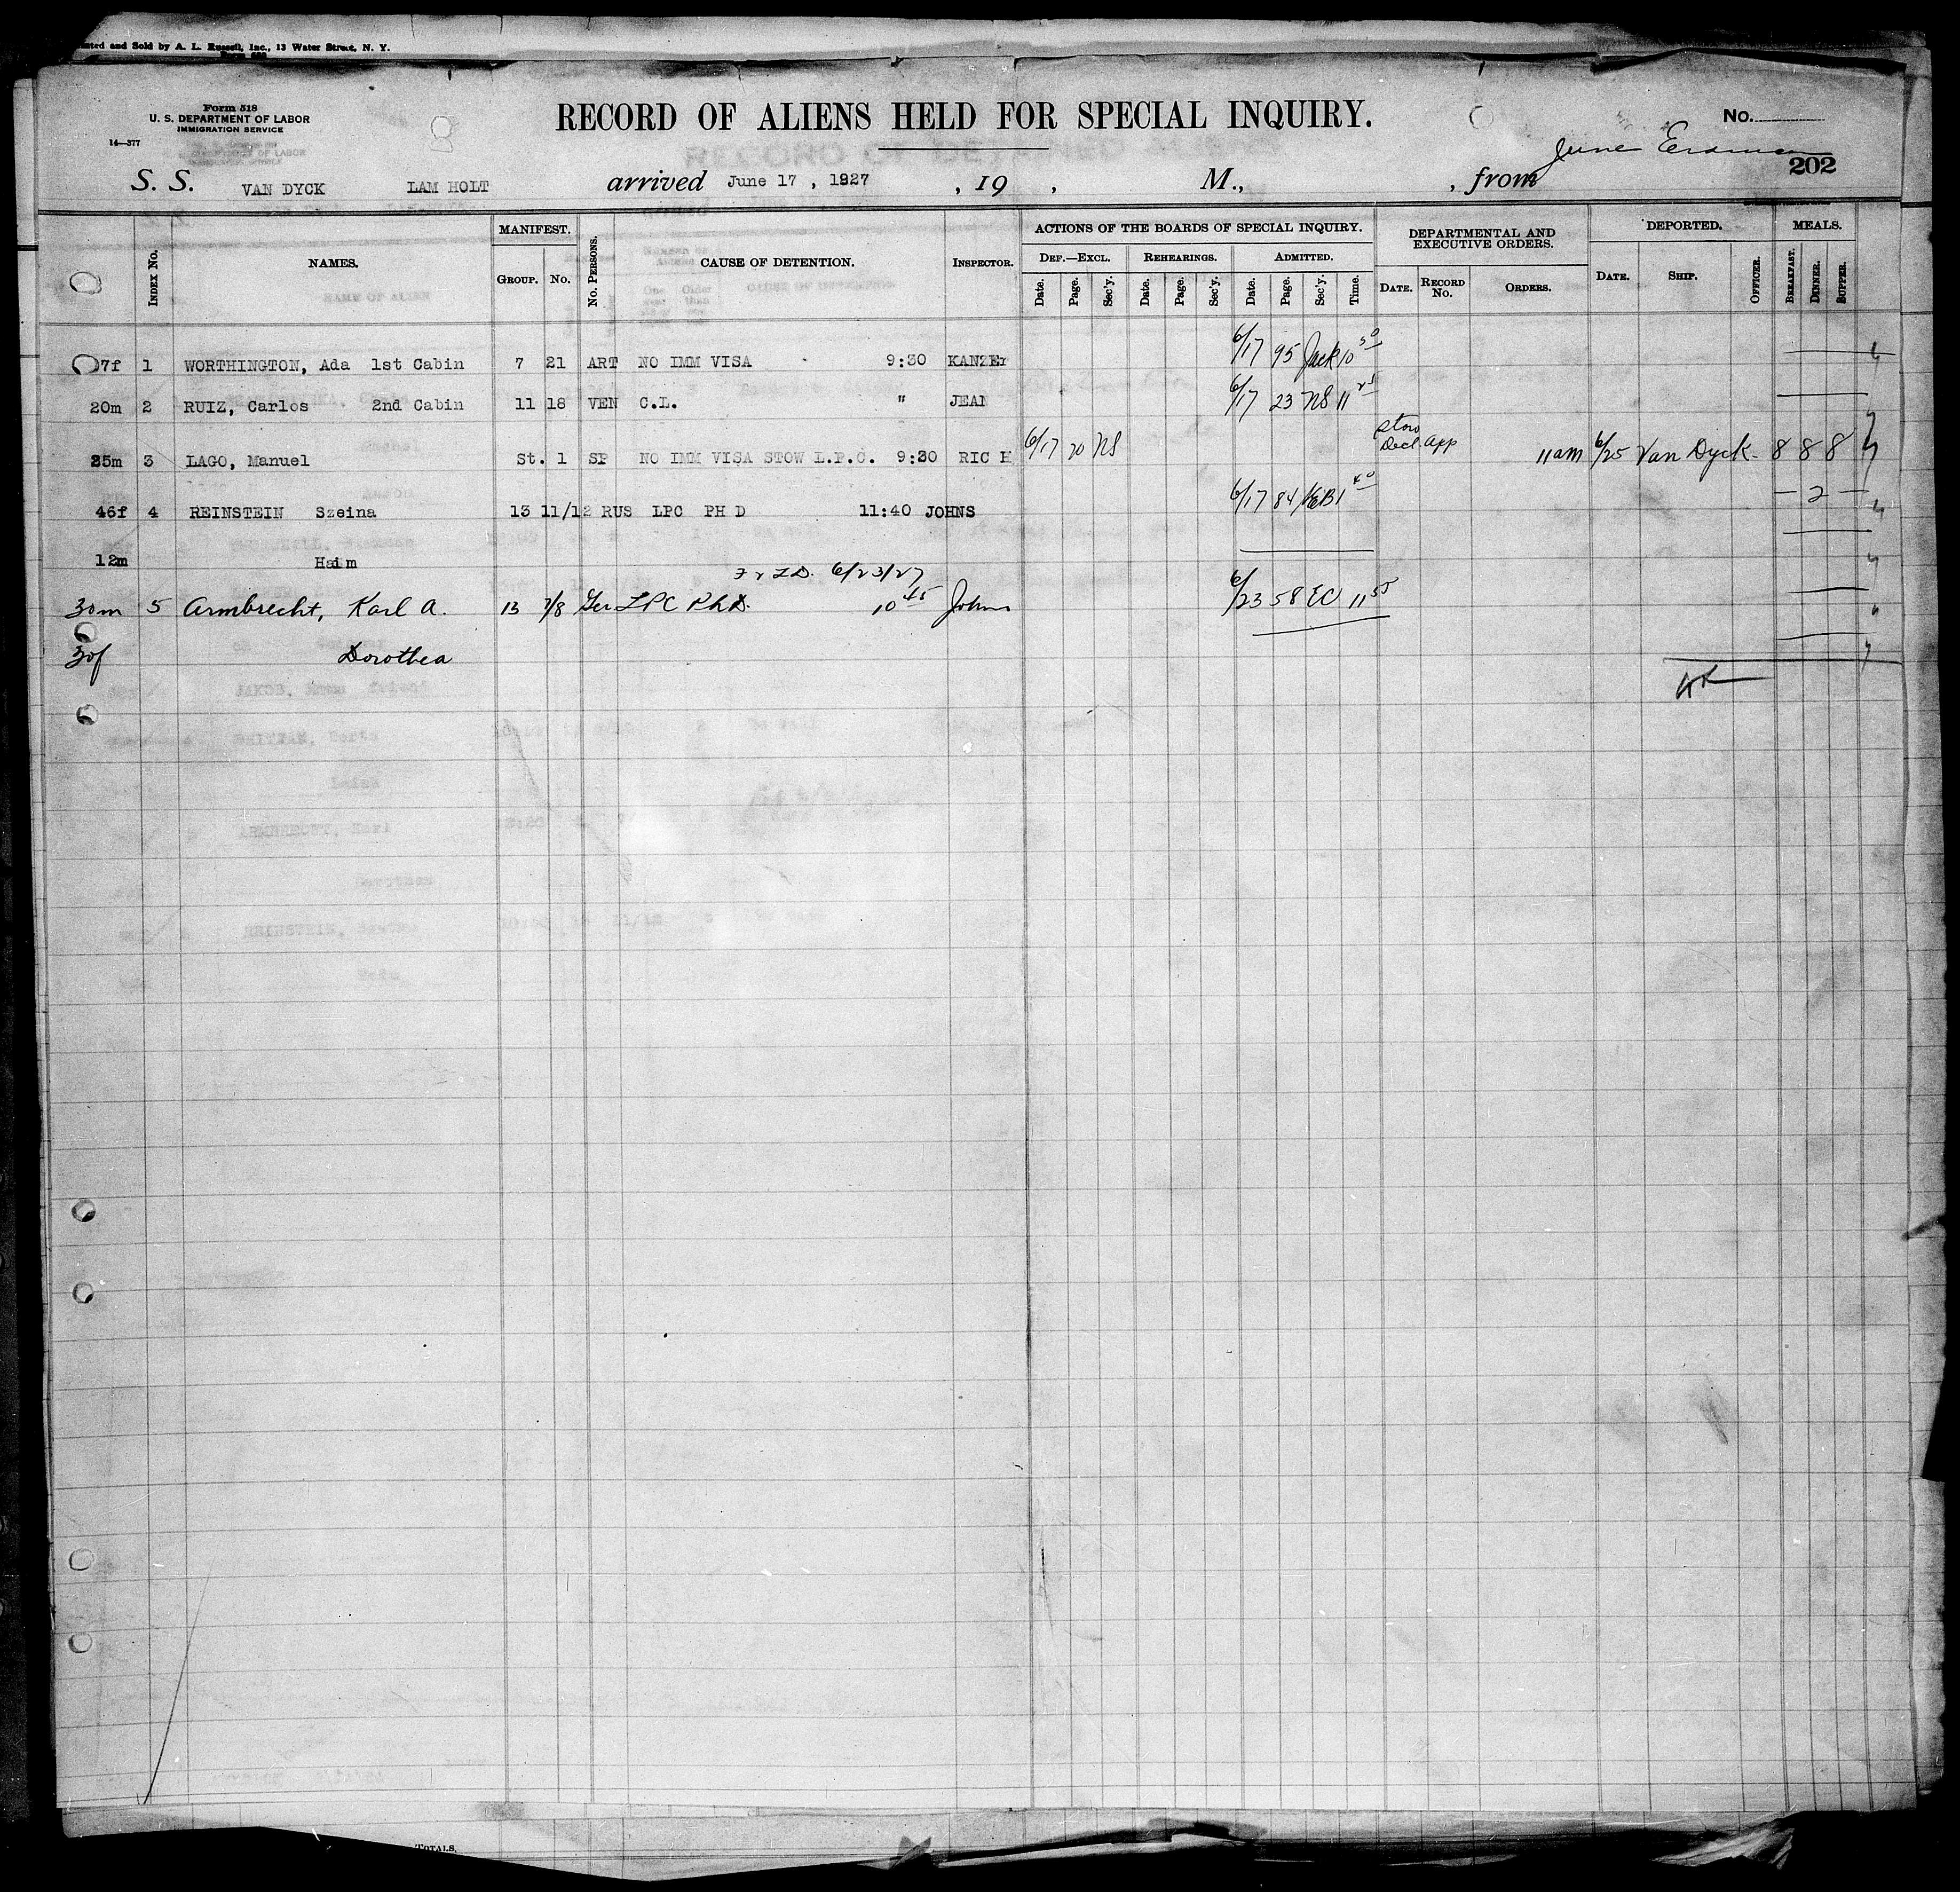 Printed and Sold by A. L. Russell, Inc., 13 Water Street, N. Y.
Form 518
U. S. DEPARTMENT OF LABOR
IMMIGRATION SERVICE
14—377
RECORD OF ALIENS HELD FOR SPECIAL INQUIRY.
No.
June
202
S. S. VAN DYCK LAM HOLT arrived June 17, 1927, 19 , M., , from
INDEX No. NAMES. MANIFEST. GROUP. No. No. PERSONS. CAUSE OF DETENTION. INSPECTOR.
ACTIONS OF THE BOARDS OF SPECIAL INQUIRY.
DEF.—EXCL. REHEARINGS. ADMITTED.
Date. Page. Sec'y. Date. Page. Sec'y. Date. Page. Sec'y. Time.
DEPARTMENTAL AND EXECUTIVE ORDERS.
DATE. RECORD No. ORDERS.
DEPORTED.
DATE. SHIP. OFFICER.
MEALS.
BREAKFAST. DINNER. SUPPER.
7f 1 WORTHINGTON, Ada 1st Cabin 7 21 ART NO IMM VISA 9:30 KANZEr 6/17 95 Jack 10 50
20m 2 RUIZ, Carlos 2nd Cabin 11 18 VEN C.L. " JEAN 6/17 23 NS 11 25
25m 3 LAGO, Manuel St. 1 SP NO IMM VISA STOW L.P.C. 9:30 RIC H 6/17 20 NS Stow Decl. App 11am 6/25 Van Dyck 8 8 8
46f 4 REINSTEIN Szeina 13 11/12 RUS LPC PH D 11:40 JOHNS 6/17 84 KEB 1 40 — 2 —
12m Haim
Fr T.D. 6/23/27
30m 5 Armbrecht, Karl A. 13 7/8 Ger LPC Ph D. 10 45 Johns 6/23 58 EC 11 55
30f Dorothea
TOTALS.